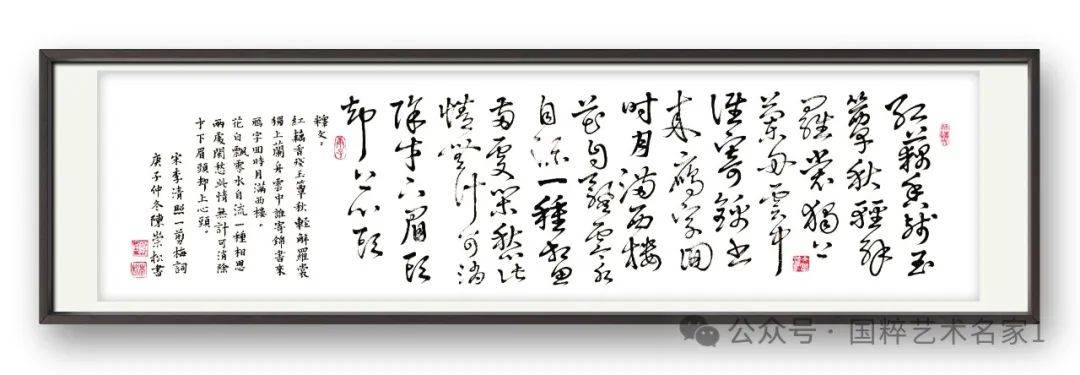 紅藕香殘玉
簟秋輕解
羅裳獨上
蘭舟雲中
誰寄錦書
來鴈字回
时月滿西楼
花自飄零水
自流一種相思
兩處閑愁此
情無計可消
除才下眉頭
却上心頭
釋文。
紅藕香殘玉簟秋輕解羅裳
獨上蘭舟雲中誰寄錦書來
鴈字回時月滿西樓。
花自飄零水自流一種相思
兩處閑愁此情無計可消除
才下眉頭却上心頭。
宋李清照一剪梅詞
庚子仲冬陳崇松書
公众号·国粹艺术名家1